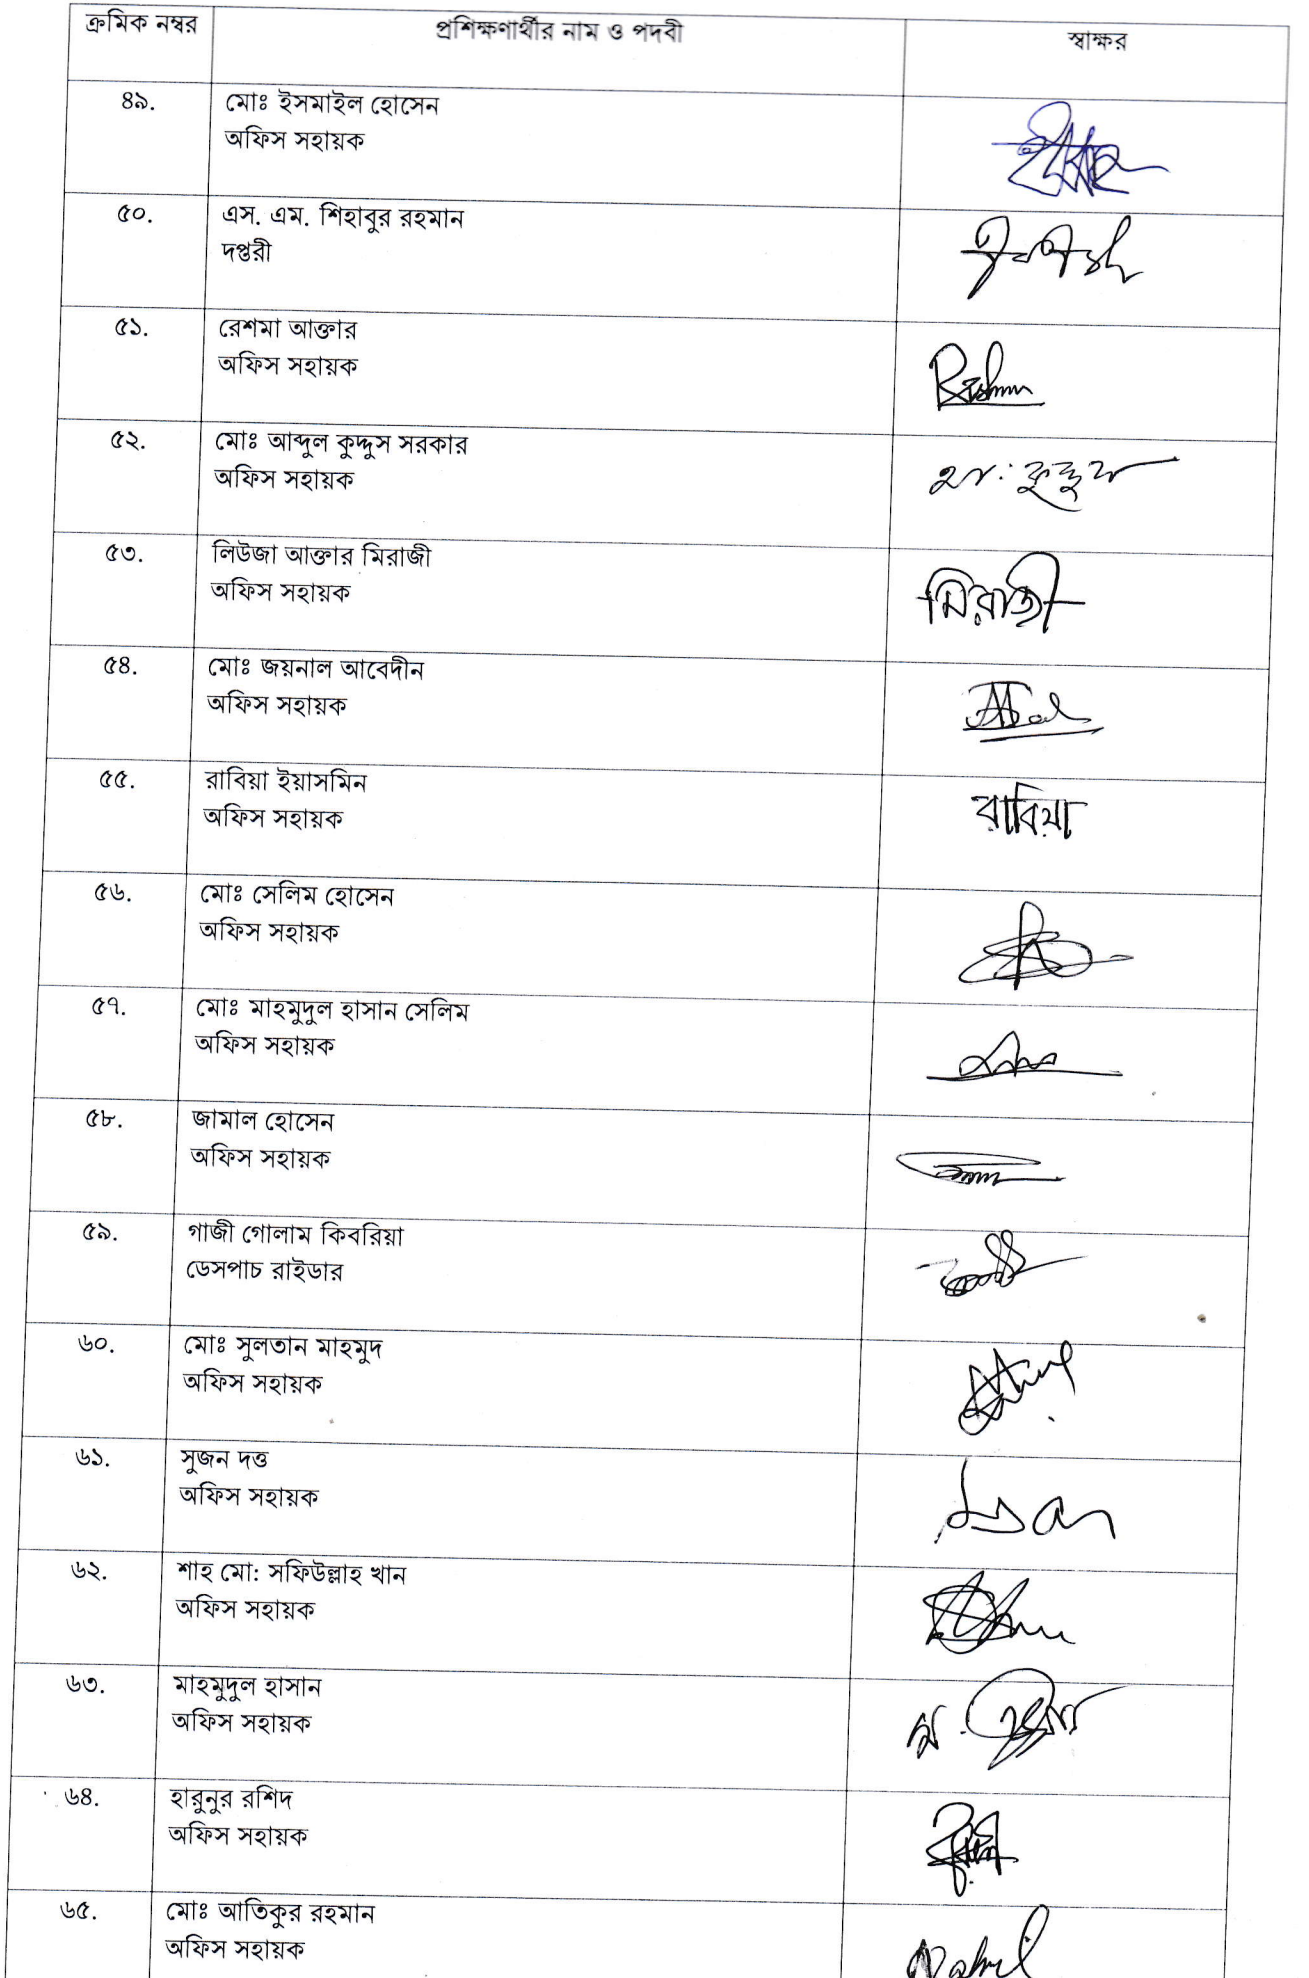 ক্রমিক নম্বর প্রশিক্ষণার্থীর নাম ও পদবী স্বাক্ষর
৪৯. মোঃ ইসমাইল হোসেন
অফিস সহায়ক
৫০. এস. এম. শিহাবুর রহমান
দপ্তরী
৫১. রেশমা আক্তার
অফিস সহায়ক
৫২. মোঃ আব্দুল কুদ্দুস সরকার
অফিস সহায়ক
৫৩. লিউজা আক্তার মিরাজী
অফিস সহায়ক
মিরাজী
৫৪. মোঃ জয়নাল আবেদীন
অফিস সহায়ক
৫৫. রাবিয়া ইয়াসমিন
অফিস সহায়ক
রাবিয়া
৫৬. মোঃ সেলিম হোসেন
অফিস সহায়ক
৫৭. মোঃ মাহমুদুল হাসান সেলিম
অফিস সহায়ক
৫৮. জামাল হোসেন
অফিস সহায়ক
৫৯. গাজী গোলাম কিবরিয়া
ডেসপাচ রাইডার
৬০. মোঃ সুলতান মাহমুদ
অফিস সহায়ক
৬১. সুজন দত্ত
অফিস সহায়ক
৬২. শাহ মো: সফিউল্লাহ খান
অফিস সহায়ক
৬৩. মাহমুদুল হাসান
অফিস সহায়ক
৬৪. হারুনুর রশিদ
অফিস সহায়ক
৬৫. মোঃ আতিকুর রহমান
অফিস সহায়ক